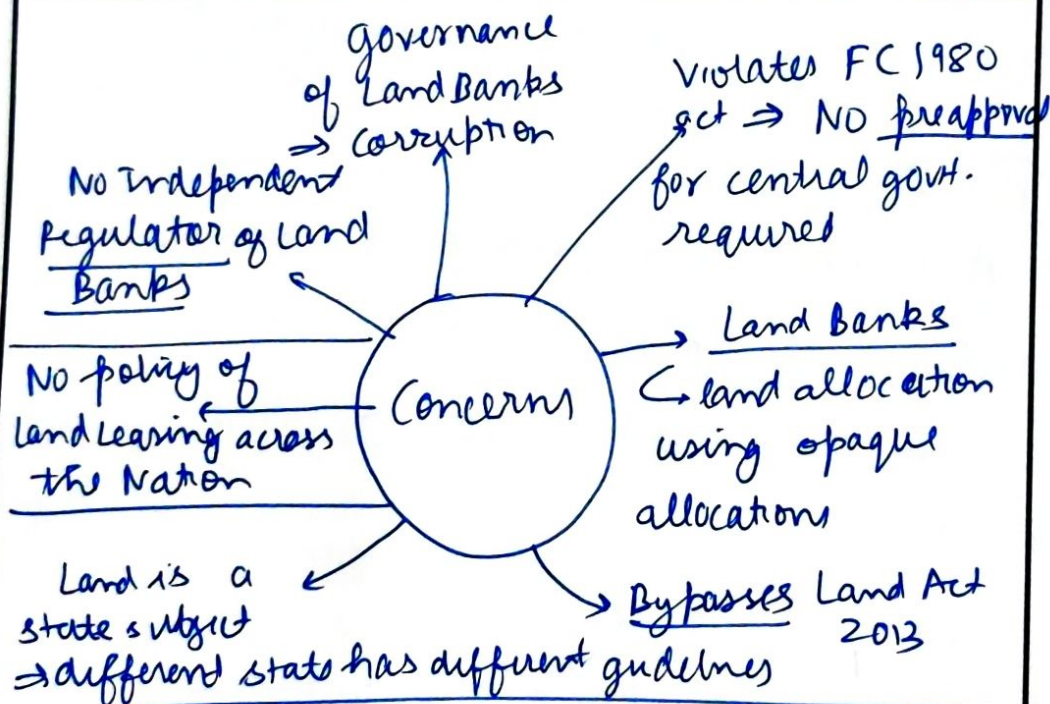 governance
of Land Banks
⇒ corruption
Violates FC 1980
act ⇒ NO preapproval
for central govt.
required
No Independent
Regulator of Land
Banks
Land Banks
↳ land allocation
using opaque
allocations
No policy of
land leasing across
the Nation
Concerns
Land is a
state subject
⇒ different stats has different gudelnes
Bypasses Land Act
2013